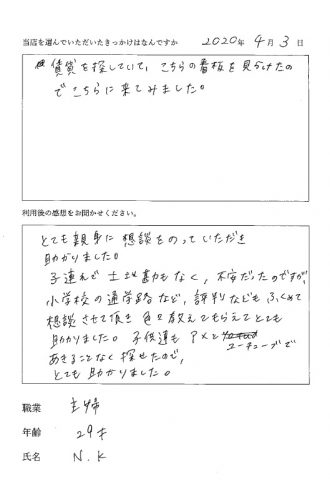 当店を選んでいただいたきっかけはなんですか 2020年 4月 3日
賃貸を探していて、こちらの看板を見かけたの
でこちらに来てみました。
利用後の感想をお聞かせください。
とても親身に想談をのっていただき
助かりました。
子連れで土地勘もなく、不安だったのですが、
小学校の通学路など、評判などもふくめて
想談させて頂き色々教えてもらえてとても
助かりました。子供達もアメと
ユーチューブで
あきることなく探せたので、
とても助かりました。
職業 主婦
年齢 29才
氏名 N.K